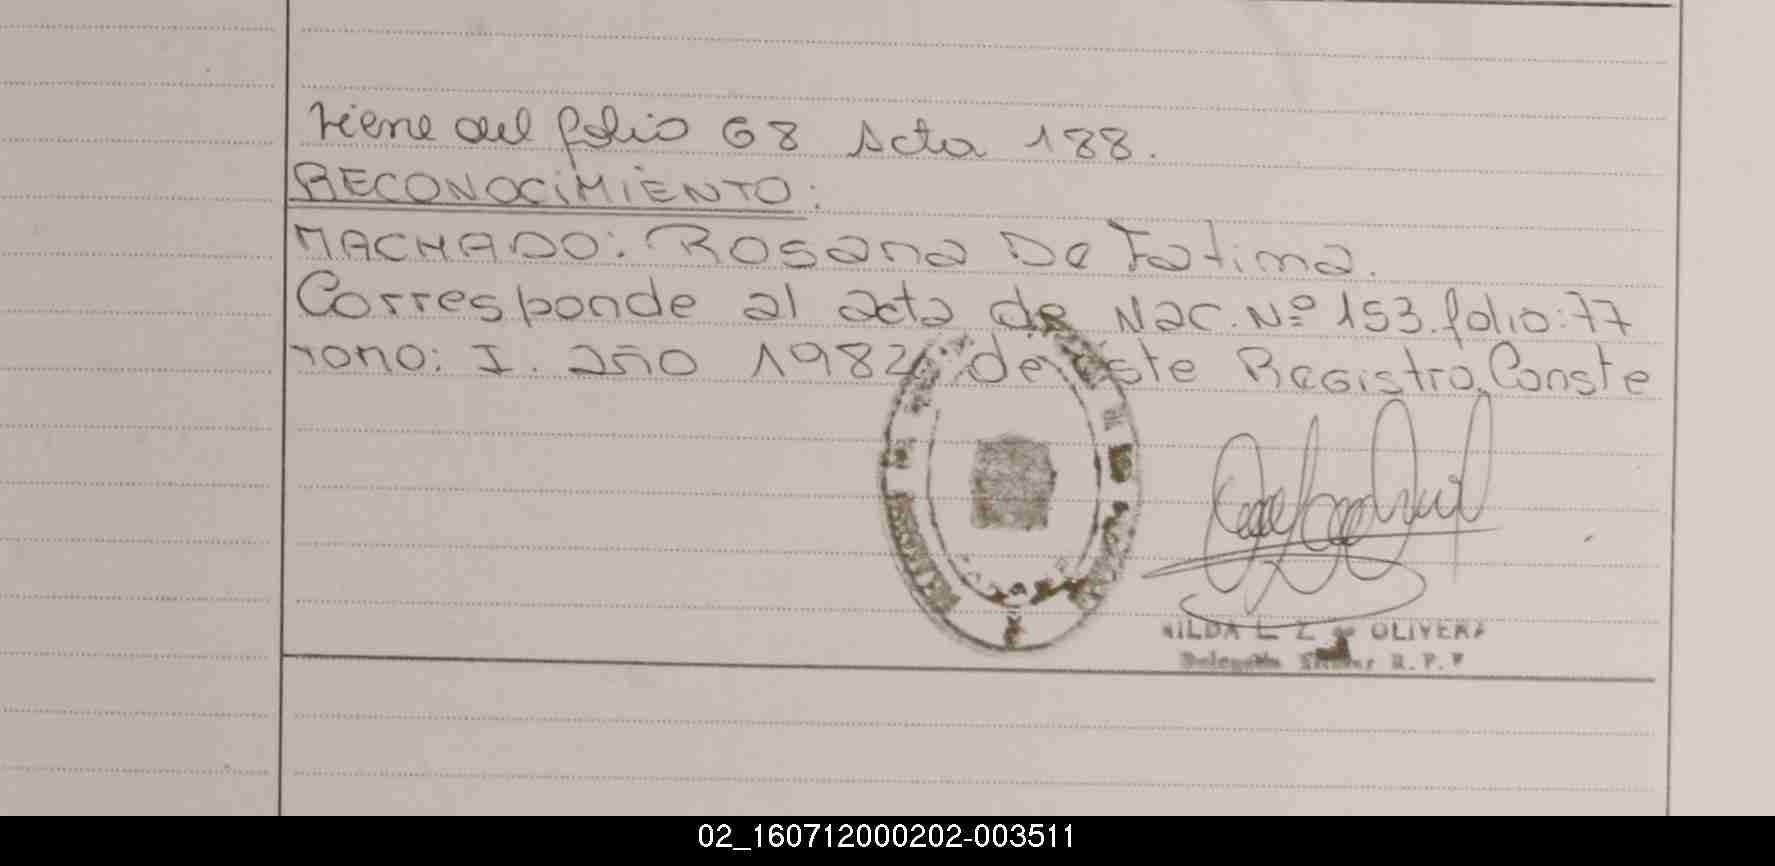 viene del folio 68 Acta 188.
RECONOCIMIENTO:
MACHADO: Rosana De Fatima.
Corresponde al acta de Nac. Nº 153. folio: 77
Tomo: I. año 1982 de este Registro. Conste
NILDA L. Z. de OLIVERA
R. P. P
02_160712000202-003511